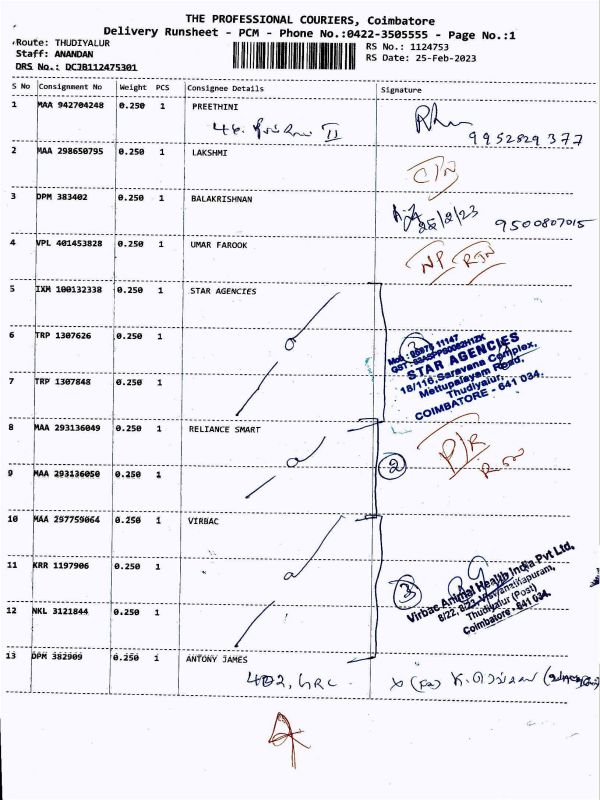 THE PROFESSIONAL COURIERS, Coimbatore
Delivery Runsheet - PCM - Phone No.:0422-3505555 - Page No.:1
Route: THUDIYALUR
RS No.: 1124753
Staff: ANANDAN
RS Date: 25-Feb-2023
DRS No.: DCJB112475301
S No Consignment No Weight PCS Consignee Details Signature
1 MAA 942704248 0.250 1 PREETHINI
9952829377
2 MAA 298650795 0.250 1 LAKSHMI
3 DPM 383402 0.250 1 BALAKRISHNAN
25/2/23 9500807015
4 VPL 401453828 0.250 1 UMAR FAROOK
NP RTN
5 IXM 100132338 0.250 1 STAR AGENCIES
6 TRP 1307626 0.250 1
STAR AGENCIES
18/116, Saravana Complex,
Mettupalayam Road,
Thudiyalur,
COIMBATORE - 641 034.
7 TRP 1307848 0.250 1
8 MAA 293136049 0.250 1 RELIANCE SMART
2
9 MAA 293136050 0.250 1
10 MAA 297759064 0.250 1 VIRBAC
11 KRR 1197906 0.250 1
3
Virbac Animal Health India Pvt Ltd,
Thudiyalur (Post)
Coimbatore - 641 034.
12 NKL 3121844 0.250 1
13 DPM 382909 0.250 1 ANTONY JAMES